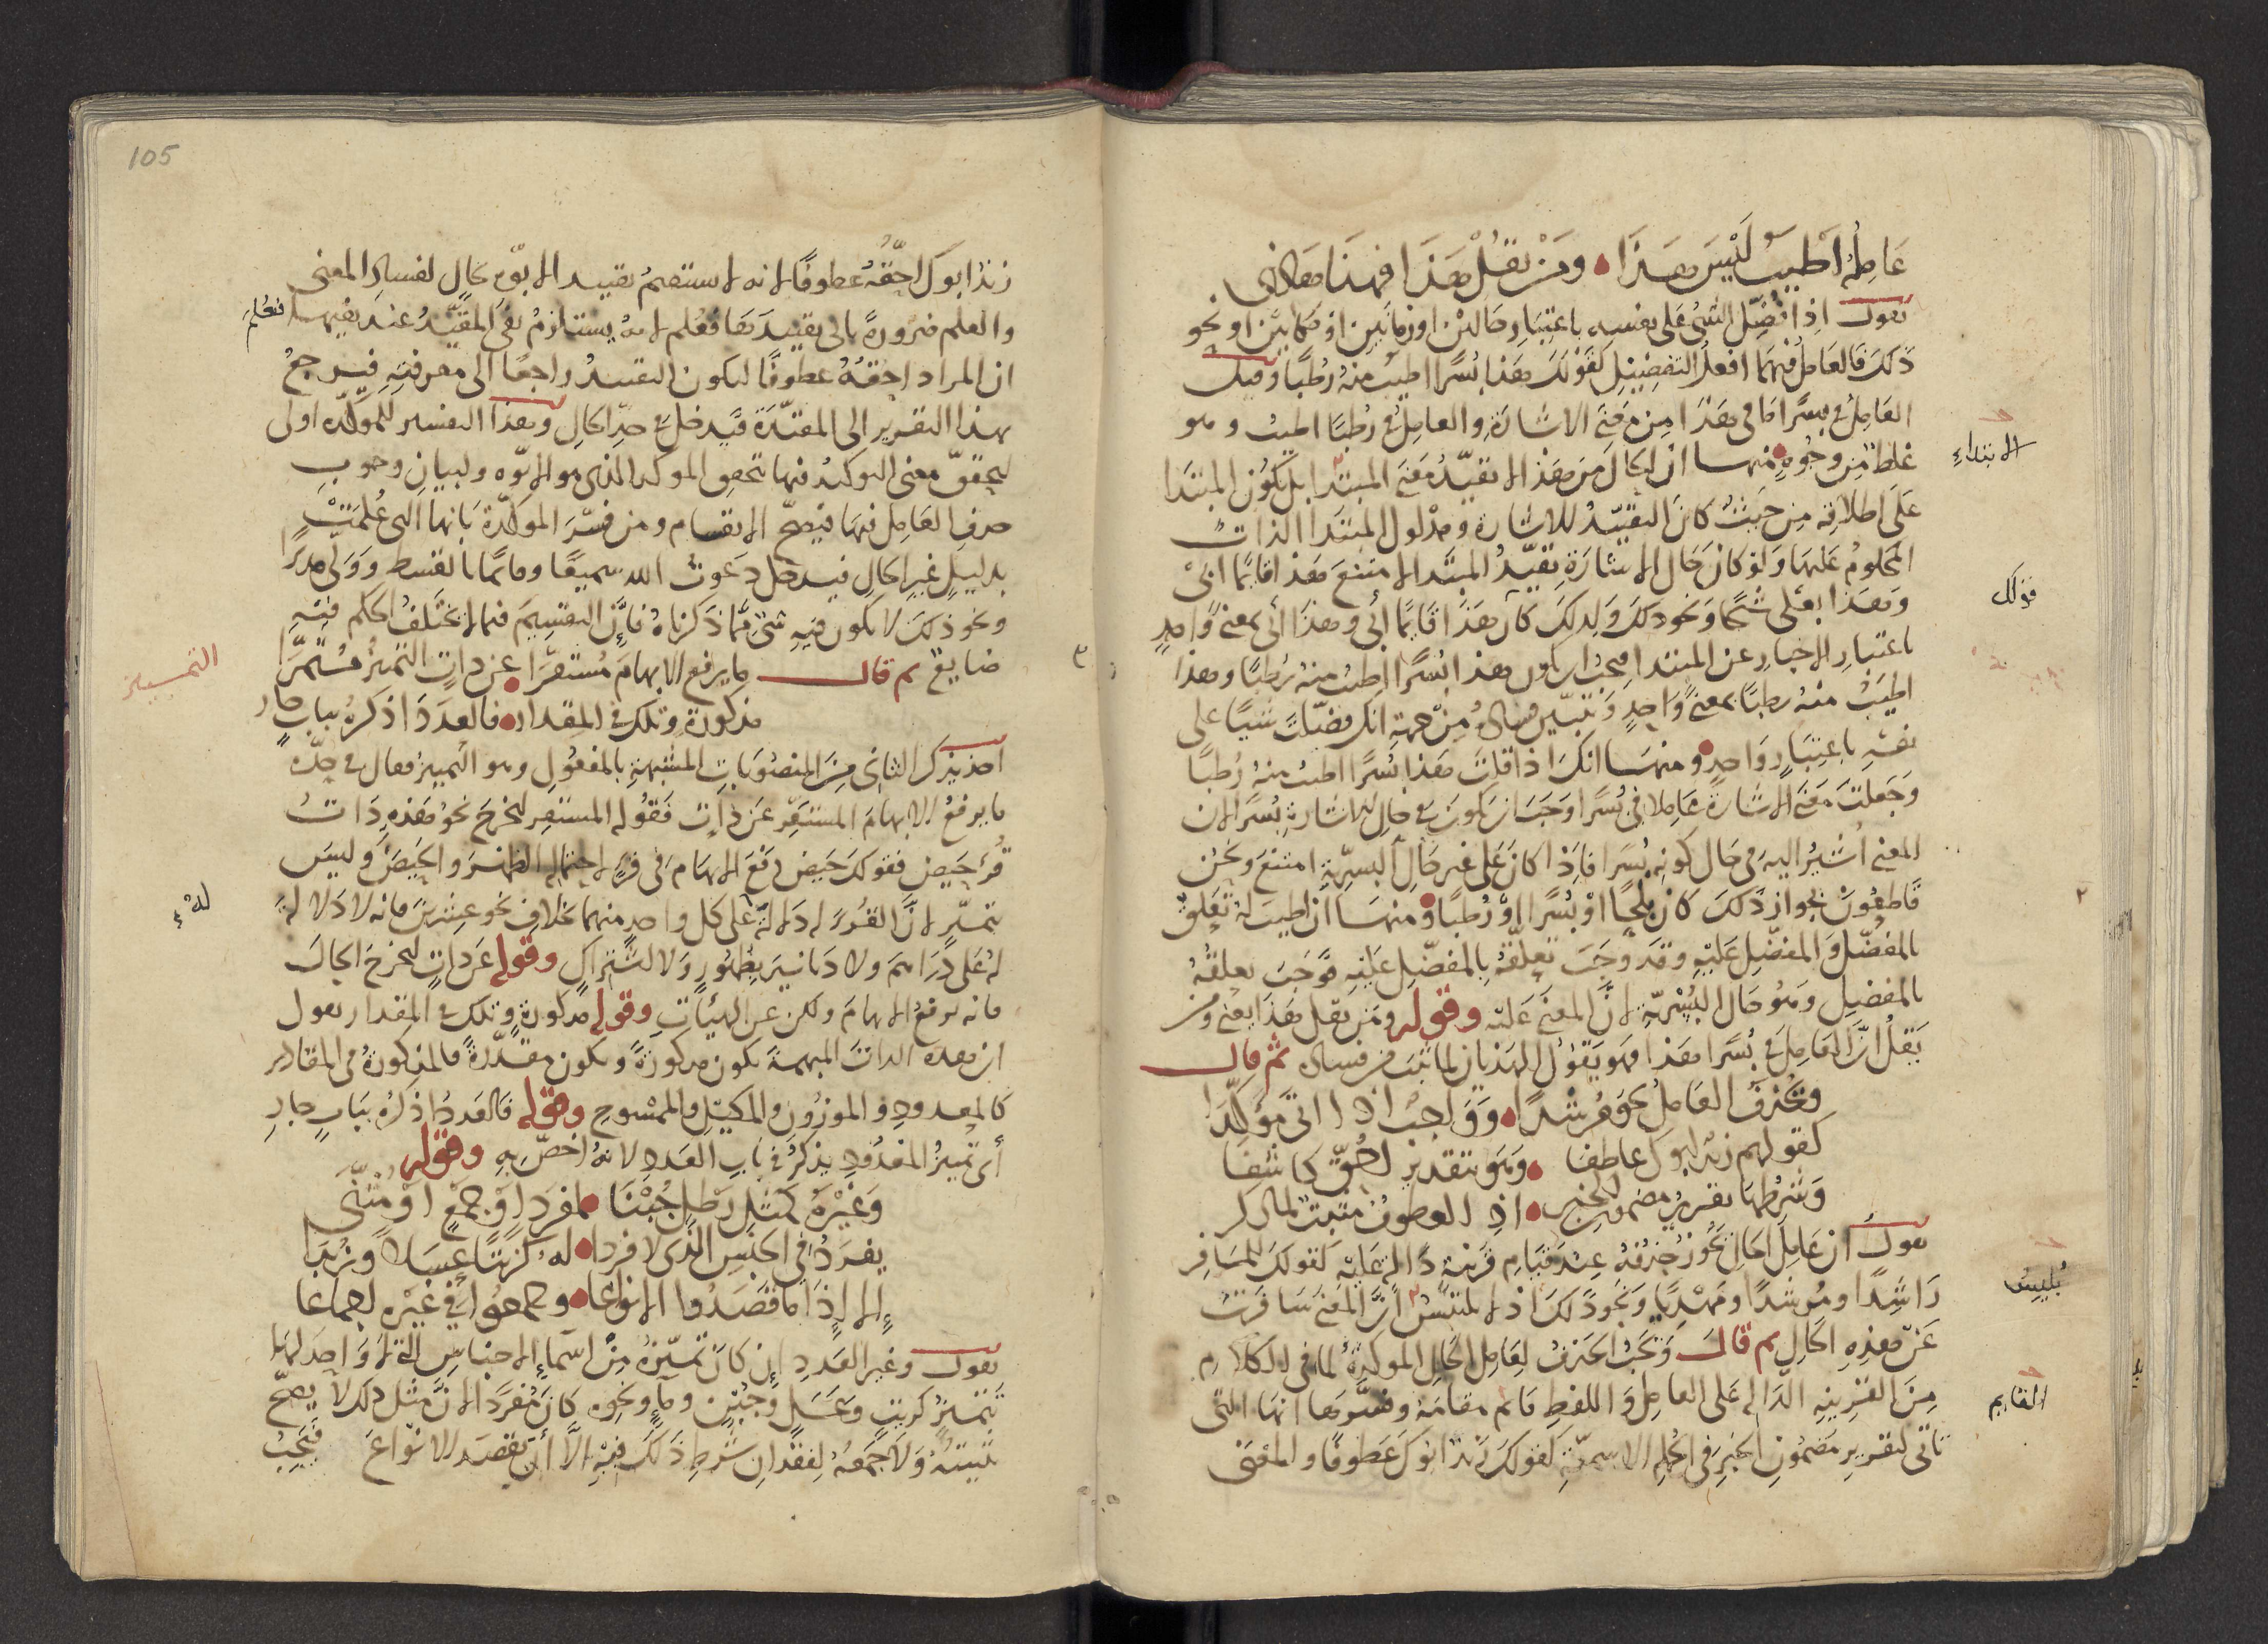 عَامِلُهُ أَطْيَبُ لَيْسَ هَذَا • وَمَنْ يَقُلْ هَذَا فَهَذَا
نقول اذا فُضِّل الشئ على نفسه باعتبار حالين او زمانين او مكانين او نحو
ذلك فالعامل فيهما افعل التفضيل كقولك هذا بسرا اطيب منه رطبا وقيل
العامل في بسرا ما في هذا من معنى الاشارة والعامل في رطبا اطيب وهو
غلط من وجوه • منها ان الحال من هذا لا تقيّد معنى المبتدا بل يكون المبتدا
الابتداء
على اطلاقه من حيث كان التقييد للاشارة ومدلول المبتدا الذات
المحكوم عليها ولو كان حال الاشارة تقيّد المبتدا لامتنع هذا قايما ابى
وهذا بعلى شيخا ونحو ذلك ولذلك كان هذا قايما ابى وهذا ابى بمعنى واحد
قولك
باعتبار الاخبار عن المبتدا هذا بسرا اطيب منه رطبا وهذا
اطيب منه رطبا بمعنى واحد وتبيّن فساده من جهة انك فضّلت شيئا على
نفسه باعتبار واحد • ومنها انك اذا قلت هذا بسرا اطيب منه رطبا
وجعلت معنى الاشارة عاملا في بسرا وجب ان يكون في حال الاشارة بسرا لان
المعنى أشير اليه في حال كونه بسرا فاذا كان على غير حال البسرية امتنع ونحن
قاطعون بجواز ذلك كان بلحا او بسرا او رطبا • ومنها ان اطيب له تعلق
بالمفضّل والمفضّل عليه وقد وجب تعلقه بالمفضّل عليه فوجب تعلقه
بالمفضل وهو حال البسرية لان المعنى عليه وقوله ومن يقل هذا يعنى ومن
يقل انّ العامل في بسرا هذا فهو يقول الهذيان لما ثبت من فساده ثم قال
وَيُحْذَفُ العَامِلُ نَحْوَ مُرْشِدًا • وَوَاجِبٌ اذا اتى مُؤكِّدا
كقولهم زيد ابوك عاطفا • وهو بتقدير احق كاشفا
وشرطها تقرير مضمون الخبر • اذ العطوف مثبت لما ذكر
نقول ان عامل الحال يجوز حذفه عند قيام قرينة دالة عليه كقولك للمسافر
راشدا ومرشدا ومهديا ونحو ذلك اذ لا يلتبس انّ المعنى سافرت
يلبس
عن هذه الحال ثم قال ويجب الحذف لعامل الحال المؤكدة لما في الكلام
من القرينة الدالة على العامل واللفظ قايم مقامه وفسّرها انها التى
القايم
تاتى لتقرير مضمون الخبر في الجملة الاسمية كقولك زيد ابوك عطوفا والمعنى
105
زيد ابوك احقّه عطوفا لانه لا يستقيم تقييد الابوّة بحال لفساد المعنى
والعلم ضرورة بان تقييدها فعلم انه يستلزم نفى المقيّد عند نفيها فعُلم
ان المراد احقه عطوفا ليكون التقييد راجعا الى معرفته فيرجع
بهذا التقرير الى المقيّدة فيدخل في حدّ الحال وهذا التفسير للمؤكّدة اولى
ليحقق معنى التوكيد فيها بتحقق المؤكد الذى هو الابوّة ولبيان وجوب
حذف العامل فيها فيصحّ الانقسام ومن فسّر المؤكّدة بانها التى عُلمت
بدليل غير الحال فيدخل دعوت الله سميعا وقائما بالقسط وولّى مدبرا
ونحو ذلك لا يكون فيه شئ ممّا ذكرناه فإنّ التقسيم فيما لا يختلف الحكم فيه
ضايع ثم قال ما يرفع الابهام مُستقرّا • عن ذات التمييز مستمرّا
التمييز
مذكورة وتلك في المقدار • فالعدد اذكره بباب جار
اخذ يذكر الثانى من المنصوبات المشبهة بالمفعول وهو التمييز فقال في حدّه
ما يرفع الابهام المستقر عن ذات فقوله المستقر ليخرج نحو هذه ذات
قُرء حيض فقولك حيض رفع الابهام في قرء لاحتماله الطهر والحيض وليس
بتمييز لانّ القرء له دلالة على كل واحد منهما بخلاف نحو عشرين فانه لا دلالة
له
له على دراهم ولا دنانير بظهور ولا اشتراك وقوله عن ذات ليخرج الحال
فانه يرفع الابهام ولكن عن الهيئات وقوله مذكورة وتلك في المقدار يعول
ان هذه الذات المبهمة تكون مذكورة وتكون مقدّرة فالمذكورة في المقادير
كالمعدود والموزون والمكيل والممسوح وقوله فالعدد اذكره بباب جار
أى تمييز المعدود يذكر في باب العدد لانه اخصّ به وقوله
وَغَيْرُهُ كَمِثْلِ رَطْلٍ جُبْنًا • لمفرد او جمع او مثنّى
يفرد في الجنس الذى لا فردا • له كزيتا عسلا وزبدا
إلا إذا ما قصدوا الانواعا • وجمعوا في غيره اجماعا
نقول وغير العدد إن كان تمييزه من اسماء الاجناس التى لا واحد لها
بتمييز كزيت وعسل وجبن وماء ونحوه كان مفردا لانّ مثل ذلك لا يصحّ
تثنيته ولا جمعه لفقدان شرط ذلك فيه الّا أن يقصد الانواع فيجب